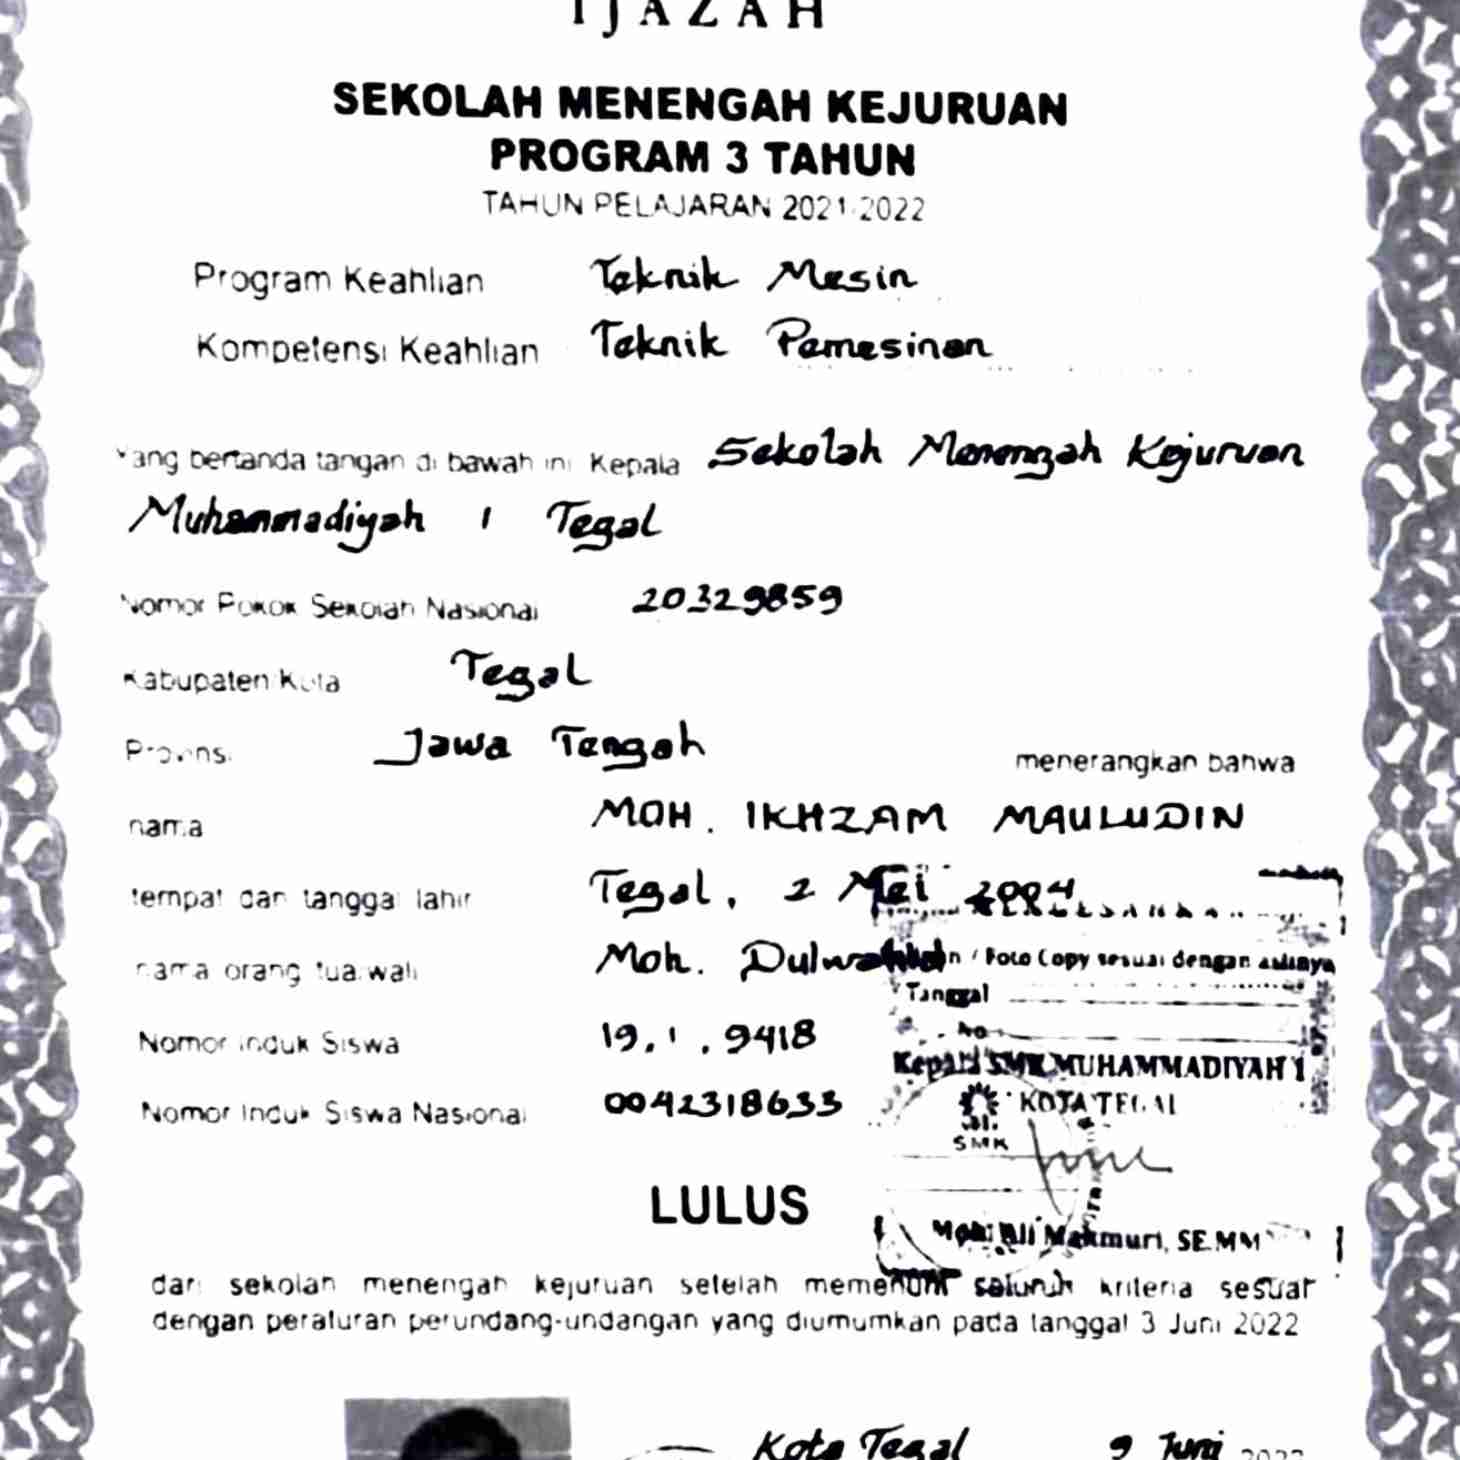 IJAZAH
SEKOLAH MENENGAH KEJURUAN
PROGRAM 3 TAHUN
TAHUN PELAJARAN 2021/2022
Program Keahlian Teknik Mesin
Kompetensi Keahlian Teknik Pemesinan
Yang bertanda tangan di bawah ini Kepala Sekolah Menengah Kejuruan
Muhammadiyah 1 Tegal
Nomor Pokok Sekolah Nasional 20329859
Kabupaten/Kota Tegal
Provinsi Jawa Tengah
menerangkan bahwa
nama MOH. IKHZAM MAULUDIN
tempat dan tanggal lahir Tegal, 2 Mei 2004
nama orang tua/wali Moh. Dulwahid
n / Foto Copy sesuai dengan aslinya
Tanggal
No
Nomor Induk Siswa 19.1.9418
Kepala SMK MUHAMMADIYAH 1
KOTA TEGAL
Nomor Induk Siswa Nasional 0042318633
SMK
LULUS
Moh. Ali Makmuri, SE.MM
dari sekolah menengah kejuruan setelah memenuhi seluruh kriteria sesuai
dengan peraturan perundang-undangan yang diumumkan pada tanggal 3 Juni 2022
Kota Tegal 9 Juni 2022